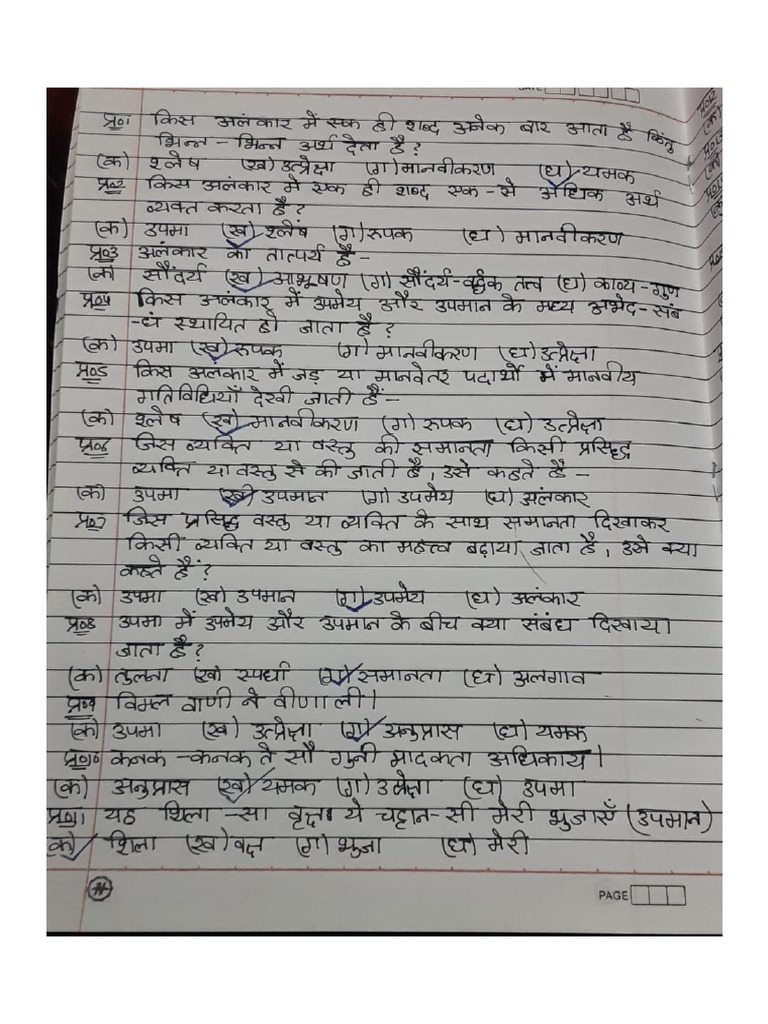 DATE
प्र०१ किस अलंकार में एक ही शब्द अनेक बार आता है किंतु
भिन्न - भिन्न अर्थ देता है?
(क) श्लेष (ख) उत्प्रेक्षा (ग) मानवीकरण (घ) यमक
प्र०२ किस अलंकार में एक ही शब्द एक - से अधिक अर्थ
व्यक्त करता है?
(क) उपमा (ख) श्लेष (ग) रूपक (घ) मानवीकरण
प्र०३ अलंकार का तात्पर्य है -
(क) सौंदर्य (ख) आभूषण (ग) सौंदर्य-वर्द्धक तत्त्व (घ) काव्य-गुण
प्र०४ किस अलंकार में उपमेय और उपमान के मध्य अभेद-संबं
-धं स्थायित हो जाता है?
(क) उपमा (ख) रूपक (ग) मानवीकरण (घ) उत्प्रेक्षा
प्र०5 किस अलंकार में जड़ या मानवेतर पदार्थो में मानवीय
गतिविधियाँ देखी जाती हैं-
(क) श्लेष (ख) मानवीकरण (ग) रूपक (घ) उत्प्रेक्षा
प्र०६ जिस व्यक्ति या वस्तु की समानता किसी प्रसिद्ध
व्यक्ति या वस्तु से की जाती है, उसे कहते है -
(क) उपमा (ख) उपमान (ग) उपमेय (घ) अलंकार
प्र०७ जिस प्रसिद्ध वस्तु या व्यक्ति के साथ समानता दिखाकर
किसी व्यक्ति या वस्तु का महत्त्व बढ़ाया जाता है, उसे क्या
कहते हैं?
(क) उपमा (ख) उपमान (ग) उपमेय (घ) अलंकार
प्र०8 उपमा में उपमेय और उपमान के बीच क्या संबंध दिखाया
जाता है?
(क) तुलना (ख) स्पर्धा (ग) समानता (घ) अलगाव
प्र०९ विमल वाणी ने वीणा ली।
(क) उपमा (ख) उत्प्रेक्षा (ग) अनुप्रास (घ) यमक
प्र०१० कनक -कनक ते सौ गुनी मादकता अधिकाय।
(क) अनुप्रास (ख) यमक (ग) उत्प्रेक्षा (घ) उपमा
प्र०११ यह शिला -सा वृक्ष ये चट्टान-सी मेरी भुजाएँ (उपमान)
(क) शिला (ख) वक्ष (ग) भुजा (घ) मेरी
PAGE